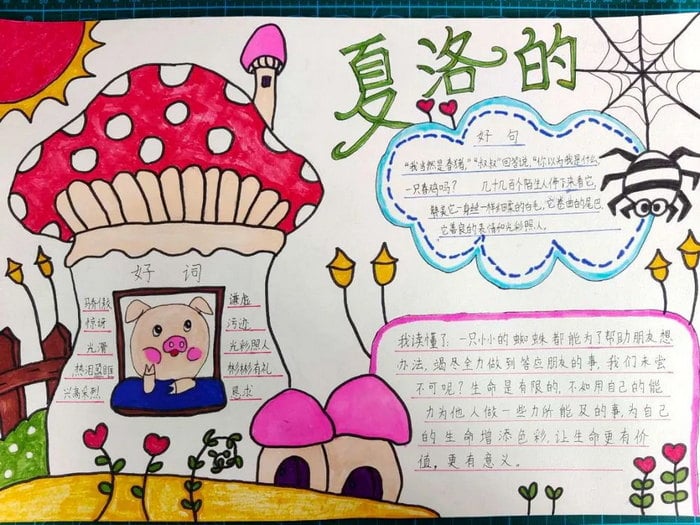 夏洛的
好句
"我当然是春猪,""叔叔"回答说,"你以为我是什么,
一只春鸡吗?  几十几百个陌生人停下来看它,
赞美它一身丝一样柔的白毛,它卷曲的尾巴,
它善良的表情和光彩照人.
好词
骄傲 谦虚
惊讶 污迹
光滑 光彩照人
热泪盈眶 彬彬有礼
兴高采烈 恳求
我读懂了 一只小小的蜘蛛都能为了帮助朋友想
办法,竭尽全力做到答应朋友的事,我们未尝
不可呢?生命是有限的,不如用自己的能
力为他人做一些力所能及的事,为自己
的生命增添色彩,让生命更有价
值,更有意义。